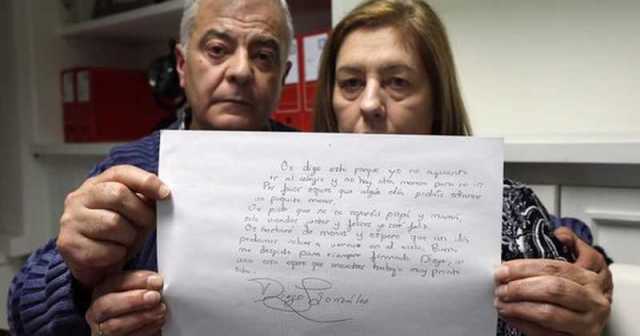 Os digo esto porque yo no aguanto
ir al colegio y no hay otra manera para no ir
Por favor espero que algún día podáis odiarme
un poquito menos.
Os pido que no os separéis papá y mamá,
solo viendoos juntos y felices yo seré feliz.
Os hecharé de menos y espero que un día
podamos volver a vernos en el cielo. Bueno
me despido para siempre firmado Diego, a
una cosa espero que encuentres trabajo muy pronto
tata.
Diego González